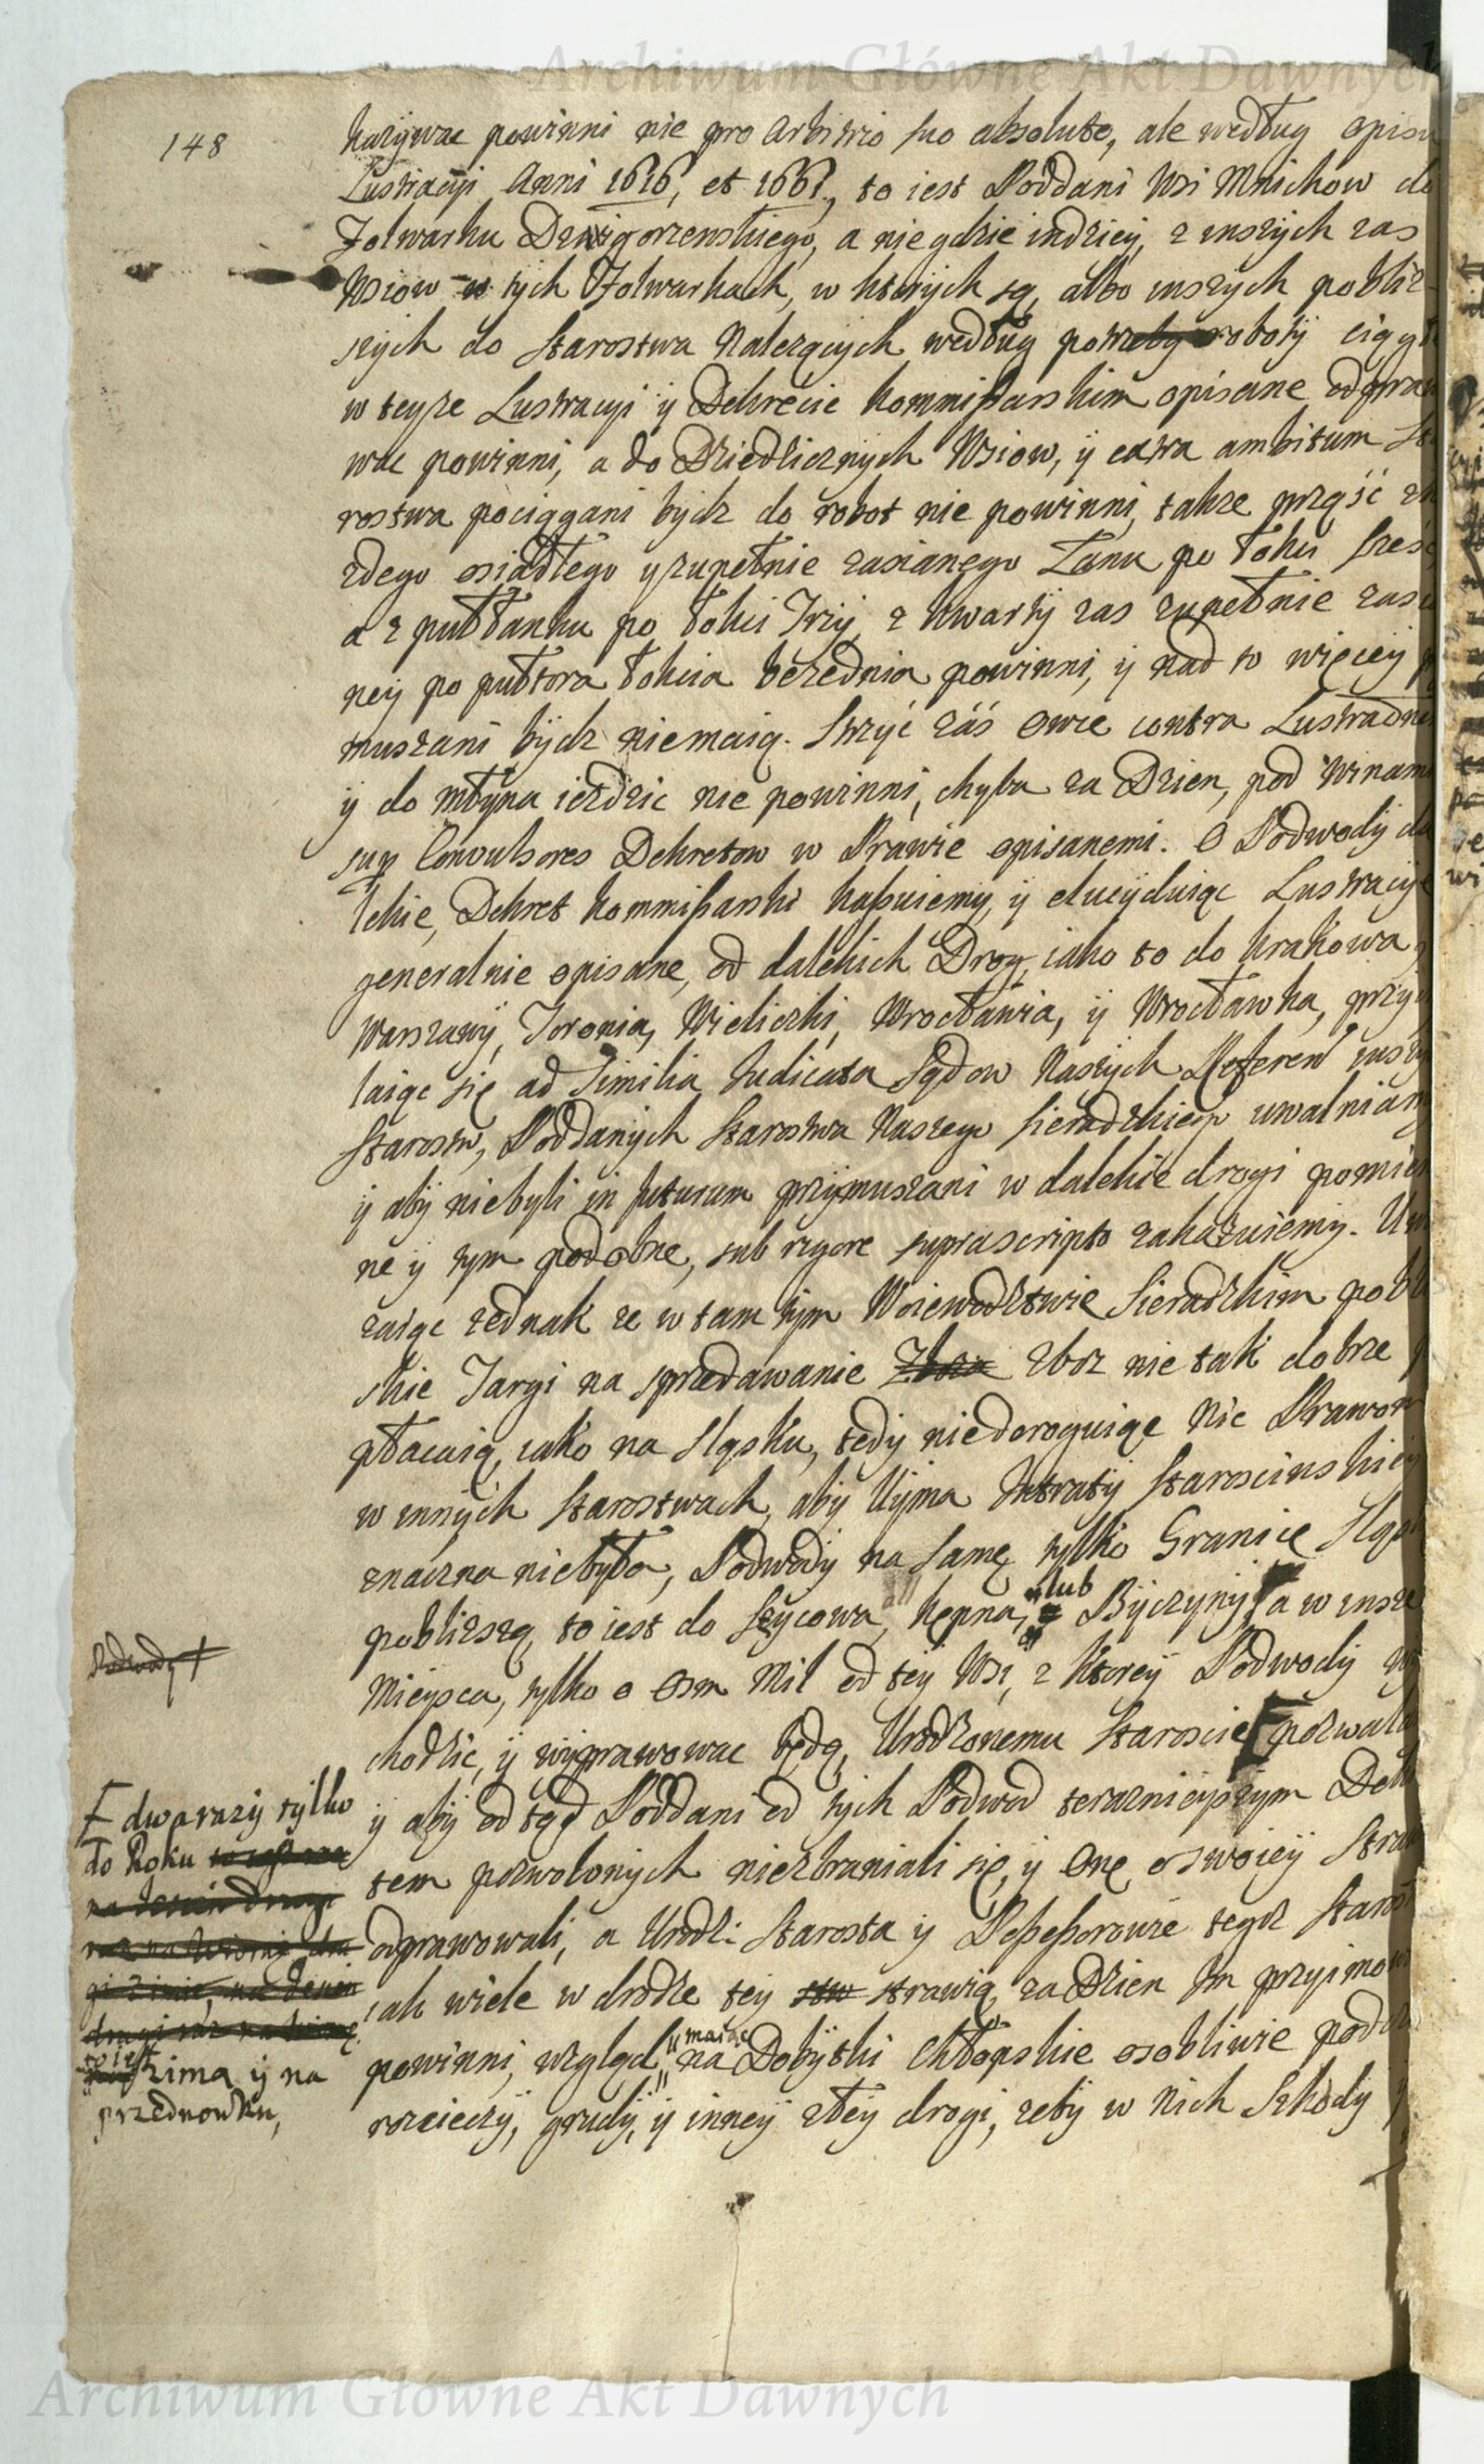 Archiwum Główne Akt Dawnych
148
kazywac powinni nie pro arbitrio suo absolute, ale według opisu
Lustracyi Anni 1616, et 1661, to iest Poddani Wsi Mnichow do
Folwarku Dzwigorzenskiego, a nie gdzie indziey, z inszych zas
Wsiow w tych Folwarkach, w ktorych są, albo inszych pobliz
szych do Starostwa Nalezących według potrzeby roboty ciągł
w teyze Lustracyi y Dekrecie Kommissarskim opisane odpraw
wac powinni, a do Dziedzicznych Wsiow, y extra ambitum Sta
rostwa pociągani bydz do robot nie powinni, takze prząść z ka
zdego osiadłego y zupełnie zasianego Łanu po łokci sześć,
a z pułłanku po łokci Trzy, z kwarty zas zupełnie zasia
ney po pułtora łokcia bezednia powinni, y nad to więcey p
muszani bydz niemaią. Strzyć zaś owce contra Lustrationem
y do młyna ieździc nie powinni, chyba za Dzien, pod winami
sup Convulsores Dekretow w Prawie opisanemi. O Podwody da
lekie, Dekret Kommissarski kassuiemy, y elucyduiąc Lustracye
generalnie opisane, od dalekich Drog, iako to do Krakowa,
Warszawy, Torunia, Wieliczki, Wrocławia, y Wrocławka, przyc
laiąc się ad Similia Iudicata Sądow Naszych Referen inszy
Starostw, Poddanych Starostwa Naszego Sieradzkiego uwalniamy
y aby niebyli in futurum przymuszani w dalekie drogi pomien
ne y tym podobne, sub rigore suprascripto zakazuiemy. Uw
zaiąc iednak ze w tamtym Woiewodztwie Sieradzkim pobli
skie Targi na sprzedawanie Zboza zboz nie tak dobrze
płacaią, iako na Sląsku, tedy niederoguiąc nic Prawom
w innych Starostwach, aby Uyma Intraty Staroscinskiey
znaczna niebyła, Podwody na Samę tylko Granicę Sląsk
pobliszą, to iest do Sycowa, Kępna, lub Byczyny, a w insze
Mieysca, tylko o Osm Mil od tey Wsi, z ktorey Podwody wy
chodzic, y wyprawowac będą, Urodzonemu Staroscie F pozwala
y aby od tąd Poddani od tych Podwod teraznieyszym Dek
tem pozwolonych niezbraniali się, y One o swoiey Straw
odprawowali, a Urodz: Starosta y Possessorowie tegoz Staros
iak wiele w drodze tey stra strawią, za Dzien Im przyimow
powinni, wzgląd maiąc na Dobytki Chłopskie osobliwie podcz
rozcieczy, grudy, y inney złey drogi, zeby w nich Szkody
Podwody
F dwa razy tylko
do Roku
to iest
zima y na
przednowku,
Archiwum Główne Akt Dawnych